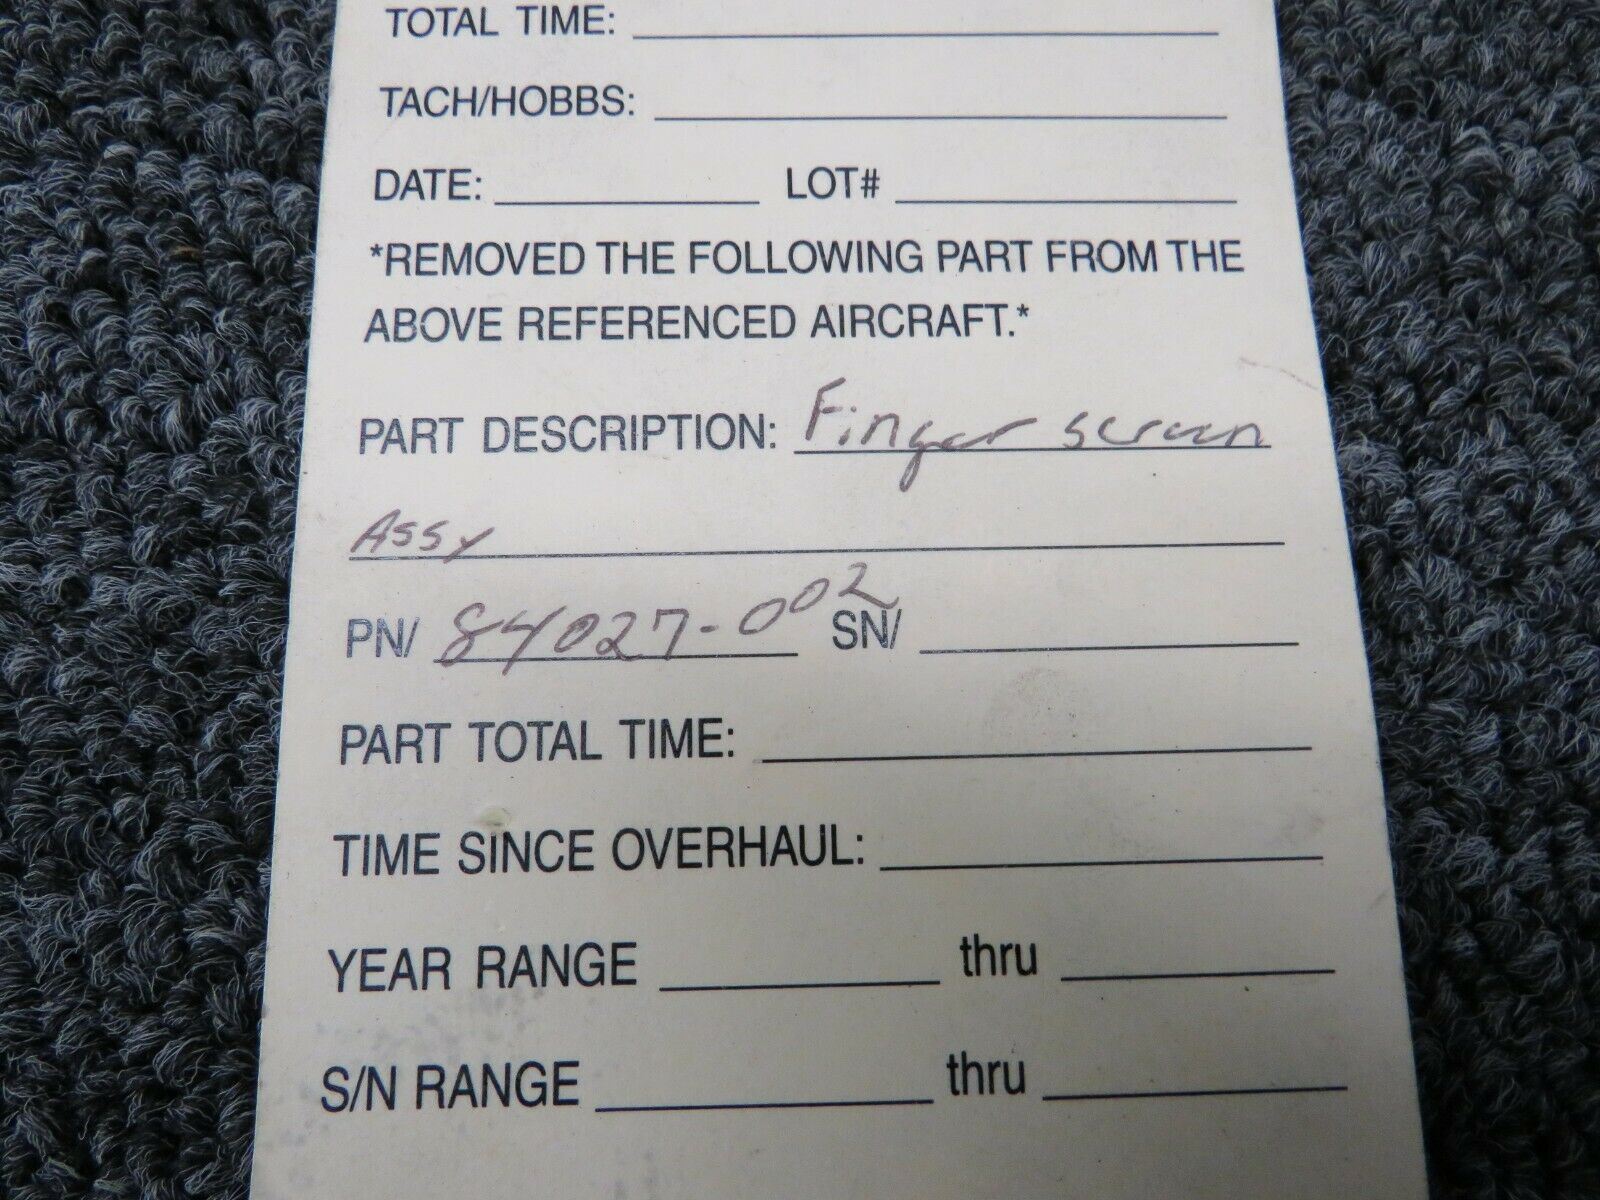 TOTAL TIME:
TACH/HOBBS:
DATE: LOT#
*REMOVED THE FOLLOWING PART FROM THE
ABOVE REFERENCED AIRCRAFT.*
PART DESCRIPTION: Finger screen
Assy
PN/ 84027-002 SN/
PART TOTAL TIME:
TIME SINCE OVERHAUL:
YEAR RANGE thru
S/N RANGE thru